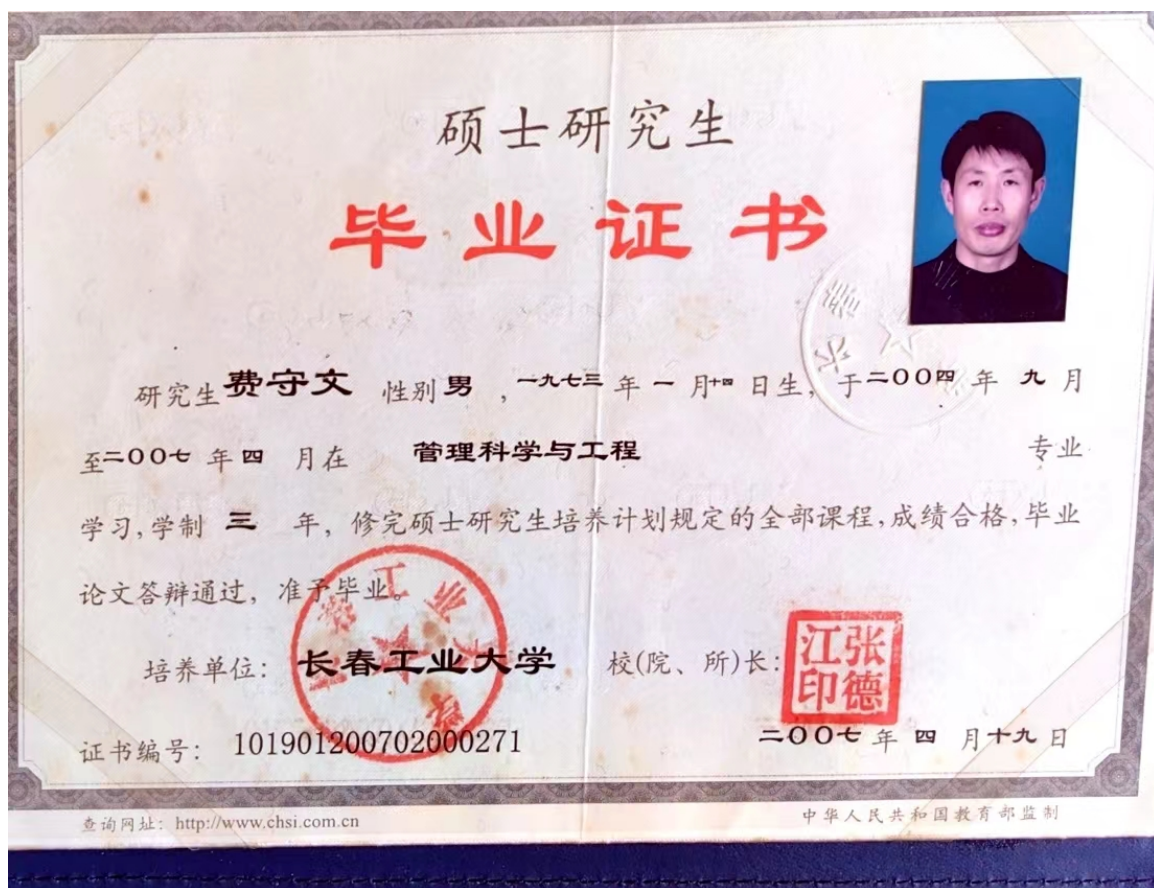 硕士研究生
毕业证书
研究生费守文 性别男 ，一九七三 年 一 月十四日生，于二〇〇四 年 九 月
至二〇〇七 年 四 月在 管理科学与工程 专业
学习,学制 三 年，修完硕士研究生培养计划规定的全部课程,成绩合格,毕业
论文答辩通过，准予毕业。
培养单位：长春工业大学 校(院、所)长：
张德江印
证书编号：101901200702000271 二〇〇七 年 四 月十九日
查询网址：http://www.chsi.com.cn 中华人民共和国教育部监制